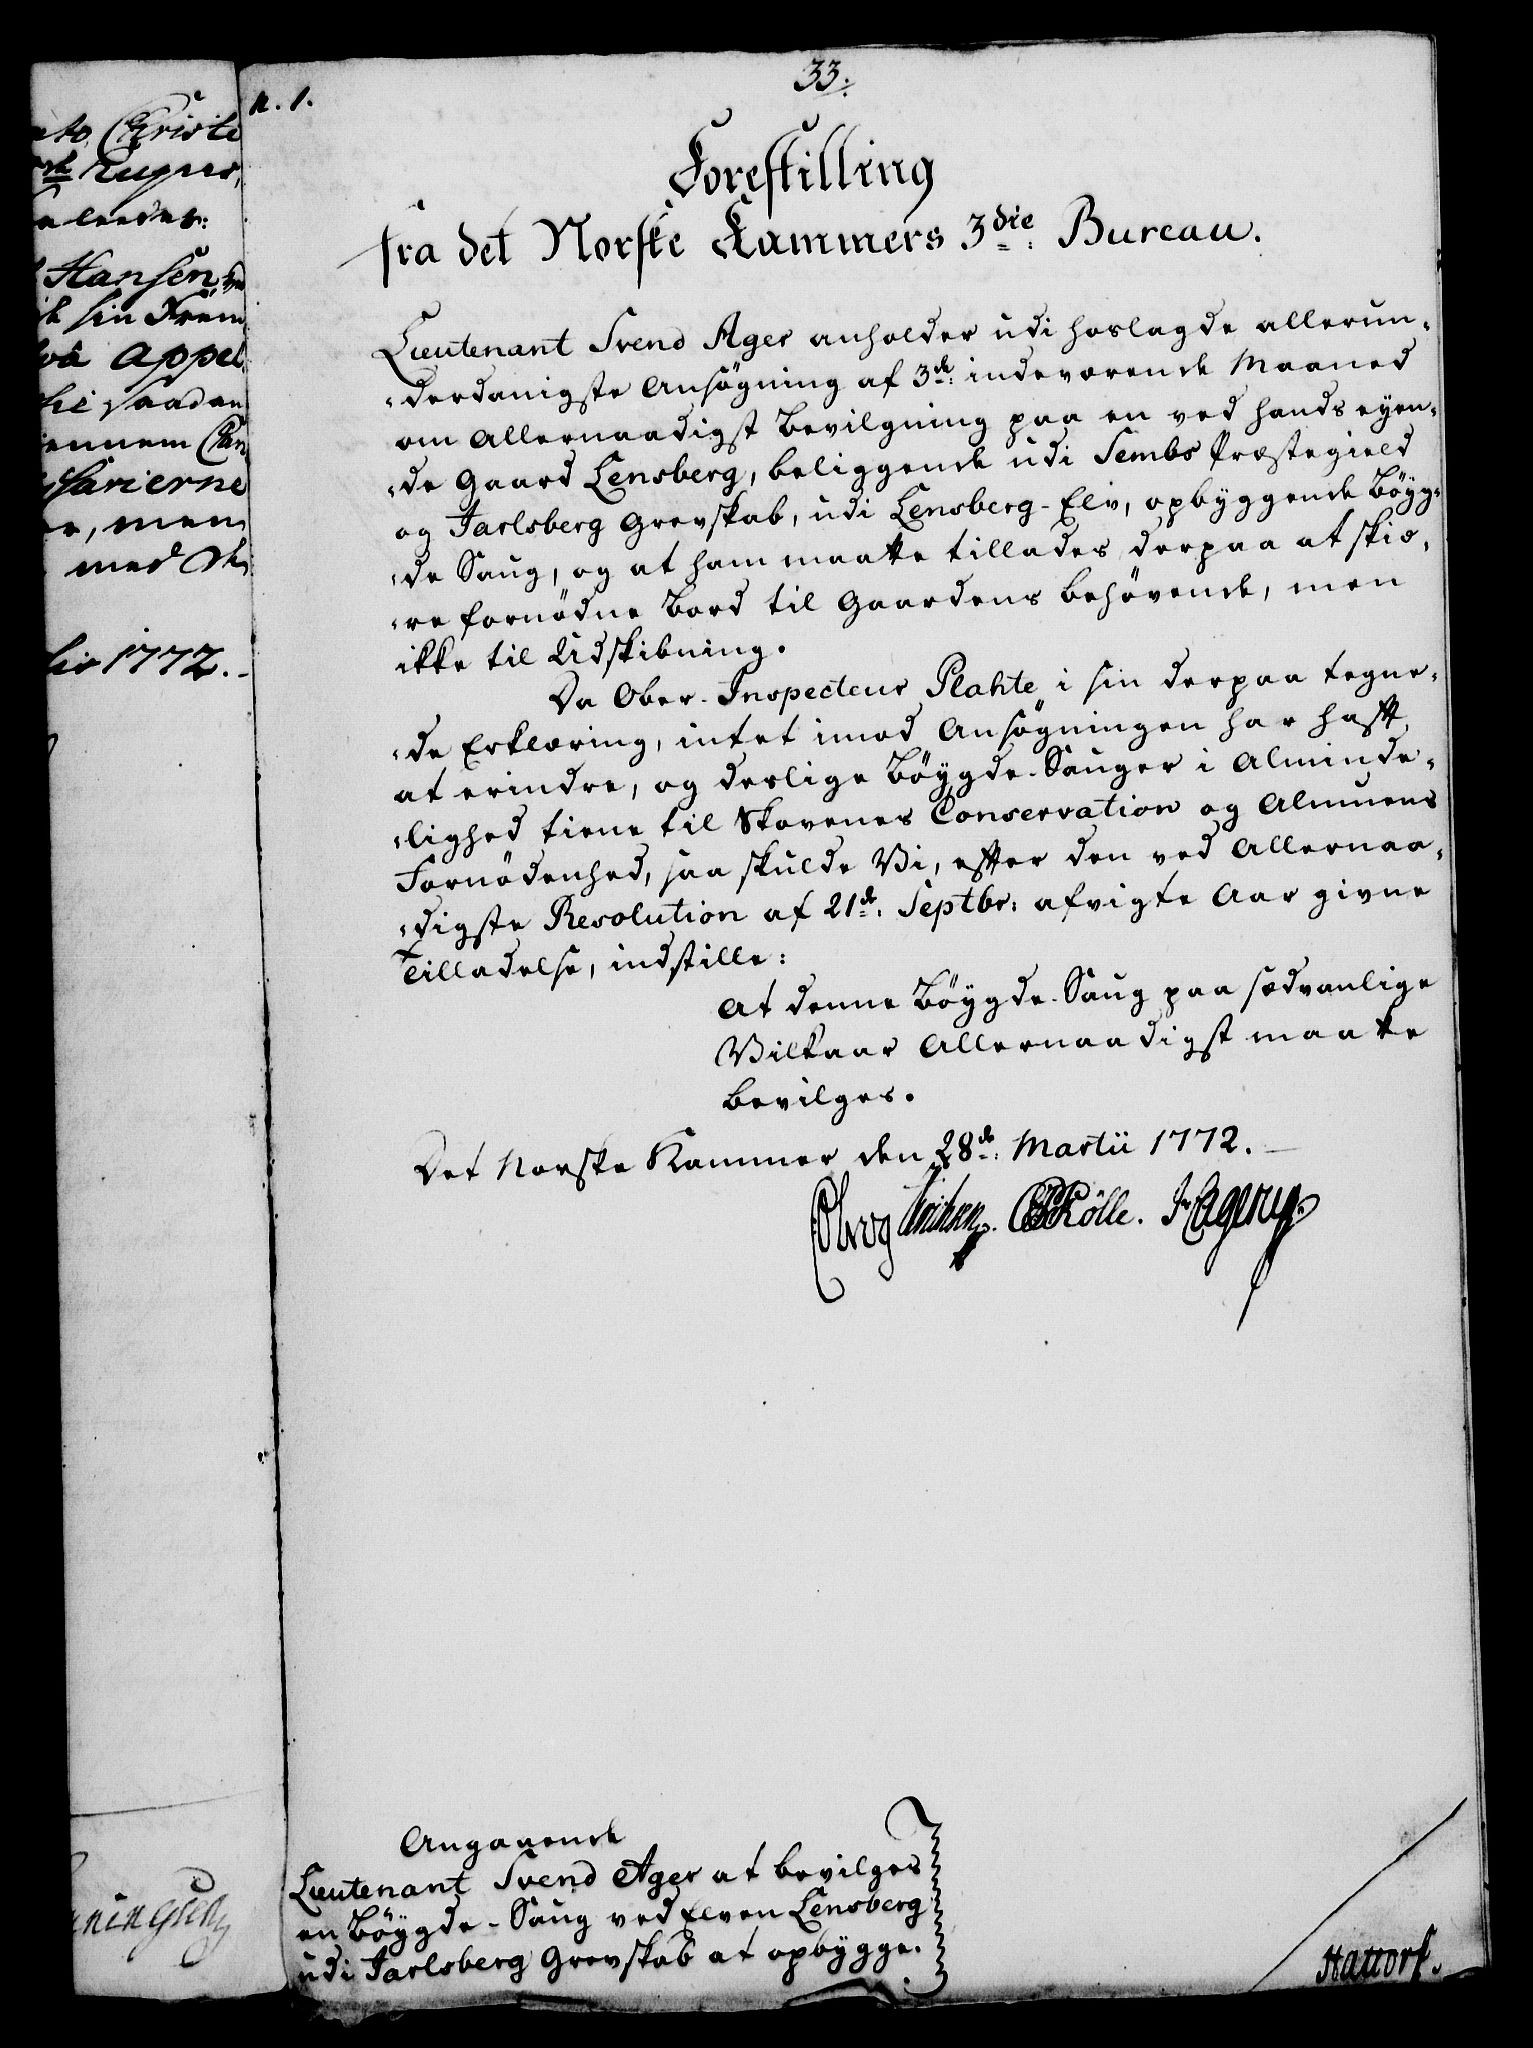 n. 1.
33.
Forestilling
fra det Norske Kammers 3die Bureau.
Lieutenant Svend Ager anholder udi hoslagde allerun-
derdanigste Ansøgning af 3de: indeværende Maaned
om Allernaadigst Bevilgning paa en ved hands eyen-
de Gaard Lensberg, beliggende udi Sembs Præstegield
og Jarlsberg Grevskab, udi Lensberg-Elv, opbyggende Böyg-
de Saug, og at ham maatte tillades derpaa at skiæ-
re fornödne Bord til Gaardens behövende, men
ikke til Udskibning.
Da Ober-Inspecteur Plahte i sin derpaa tegne-
de Erklæring, intet imod Ansøgningen har hafft
at erindre, og deslige Böygde-Sauger i Alminde-
lighed tiene til Skovenes Conservation og Almuens
Fornödenhed, saa skulde Vi, effter den ved Allernaa-
digste Resolution af 21de: Septbr: afvigte Aar givne
Tilladelse, indstille:
At denne Böygde-Saug paa sædvanlige
Vilkaar Allernaadigst maatte
bevilges.
Det Norske Kammer den 28de: Martii 1772.
Kölle.
Angaaende
Lieutenant Svend Ager at bevilges
en Böygde-Saug ved Elven Lensberg
udi Jarlsberg Grevskab at opbygge.
Hattorf.
Christe
leedes:
Hansen
sin Frem
appel
saadan
ennem
sarierne
men
med
1772.